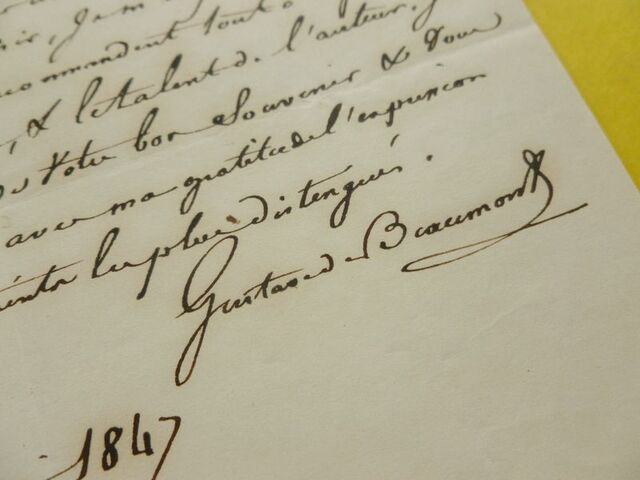 commandent tout
, & le talent de l'auteur, J
de votre bon Souvenir & vous
avec ma gratitude l'expression
les plus distingués.
Gustave de Beaumont
1847